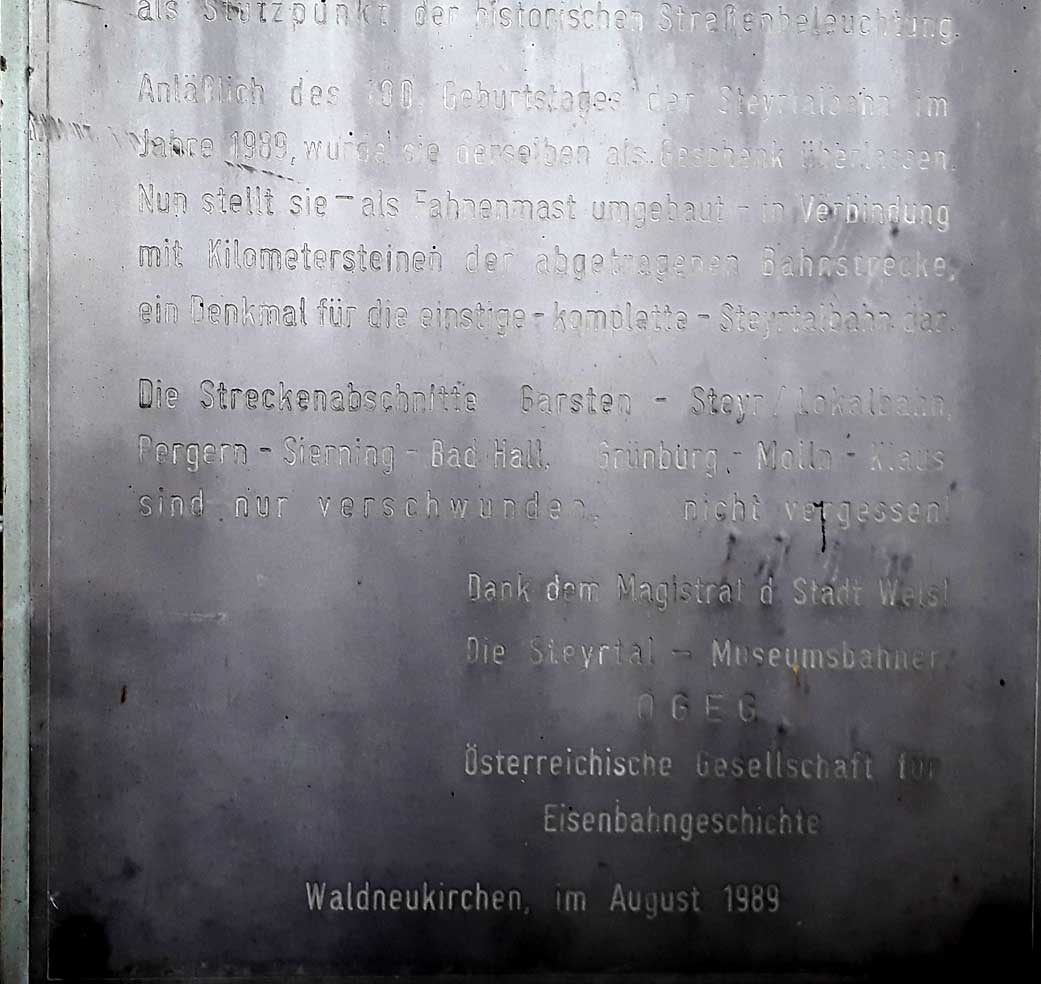 als Stützpunkt der historischen Straßenbeleuchtung.
Anläßlich des 100. Geburtstages der Steyrtalbahn im
Jahre 1989, wurde sie derselben als Geschenk überlassen.
Nun stellt sie – als Fahnenmast umgebaut – in Verbindung
mit Kilometersteinen der abgetragenen Bahnstrecke,
ein Denkmal für die einstige – komplette – Steyrtalbahn dar.
Die Streckenabschnitte Garsten – Steyr / Lokalbahn,
Pergern – Sierning – Bad Hall, Grünburg – Molln – Klaus
sind nur verschwunden, nicht vergessen!
Dank dem Magistrat d Stadt Wels!
Die Steyrtal – Museumsbahner
ÖGEG
Österreichische Gesellschaft für
Eisenbahngeschichte
Waldneukirchen, im August 1989